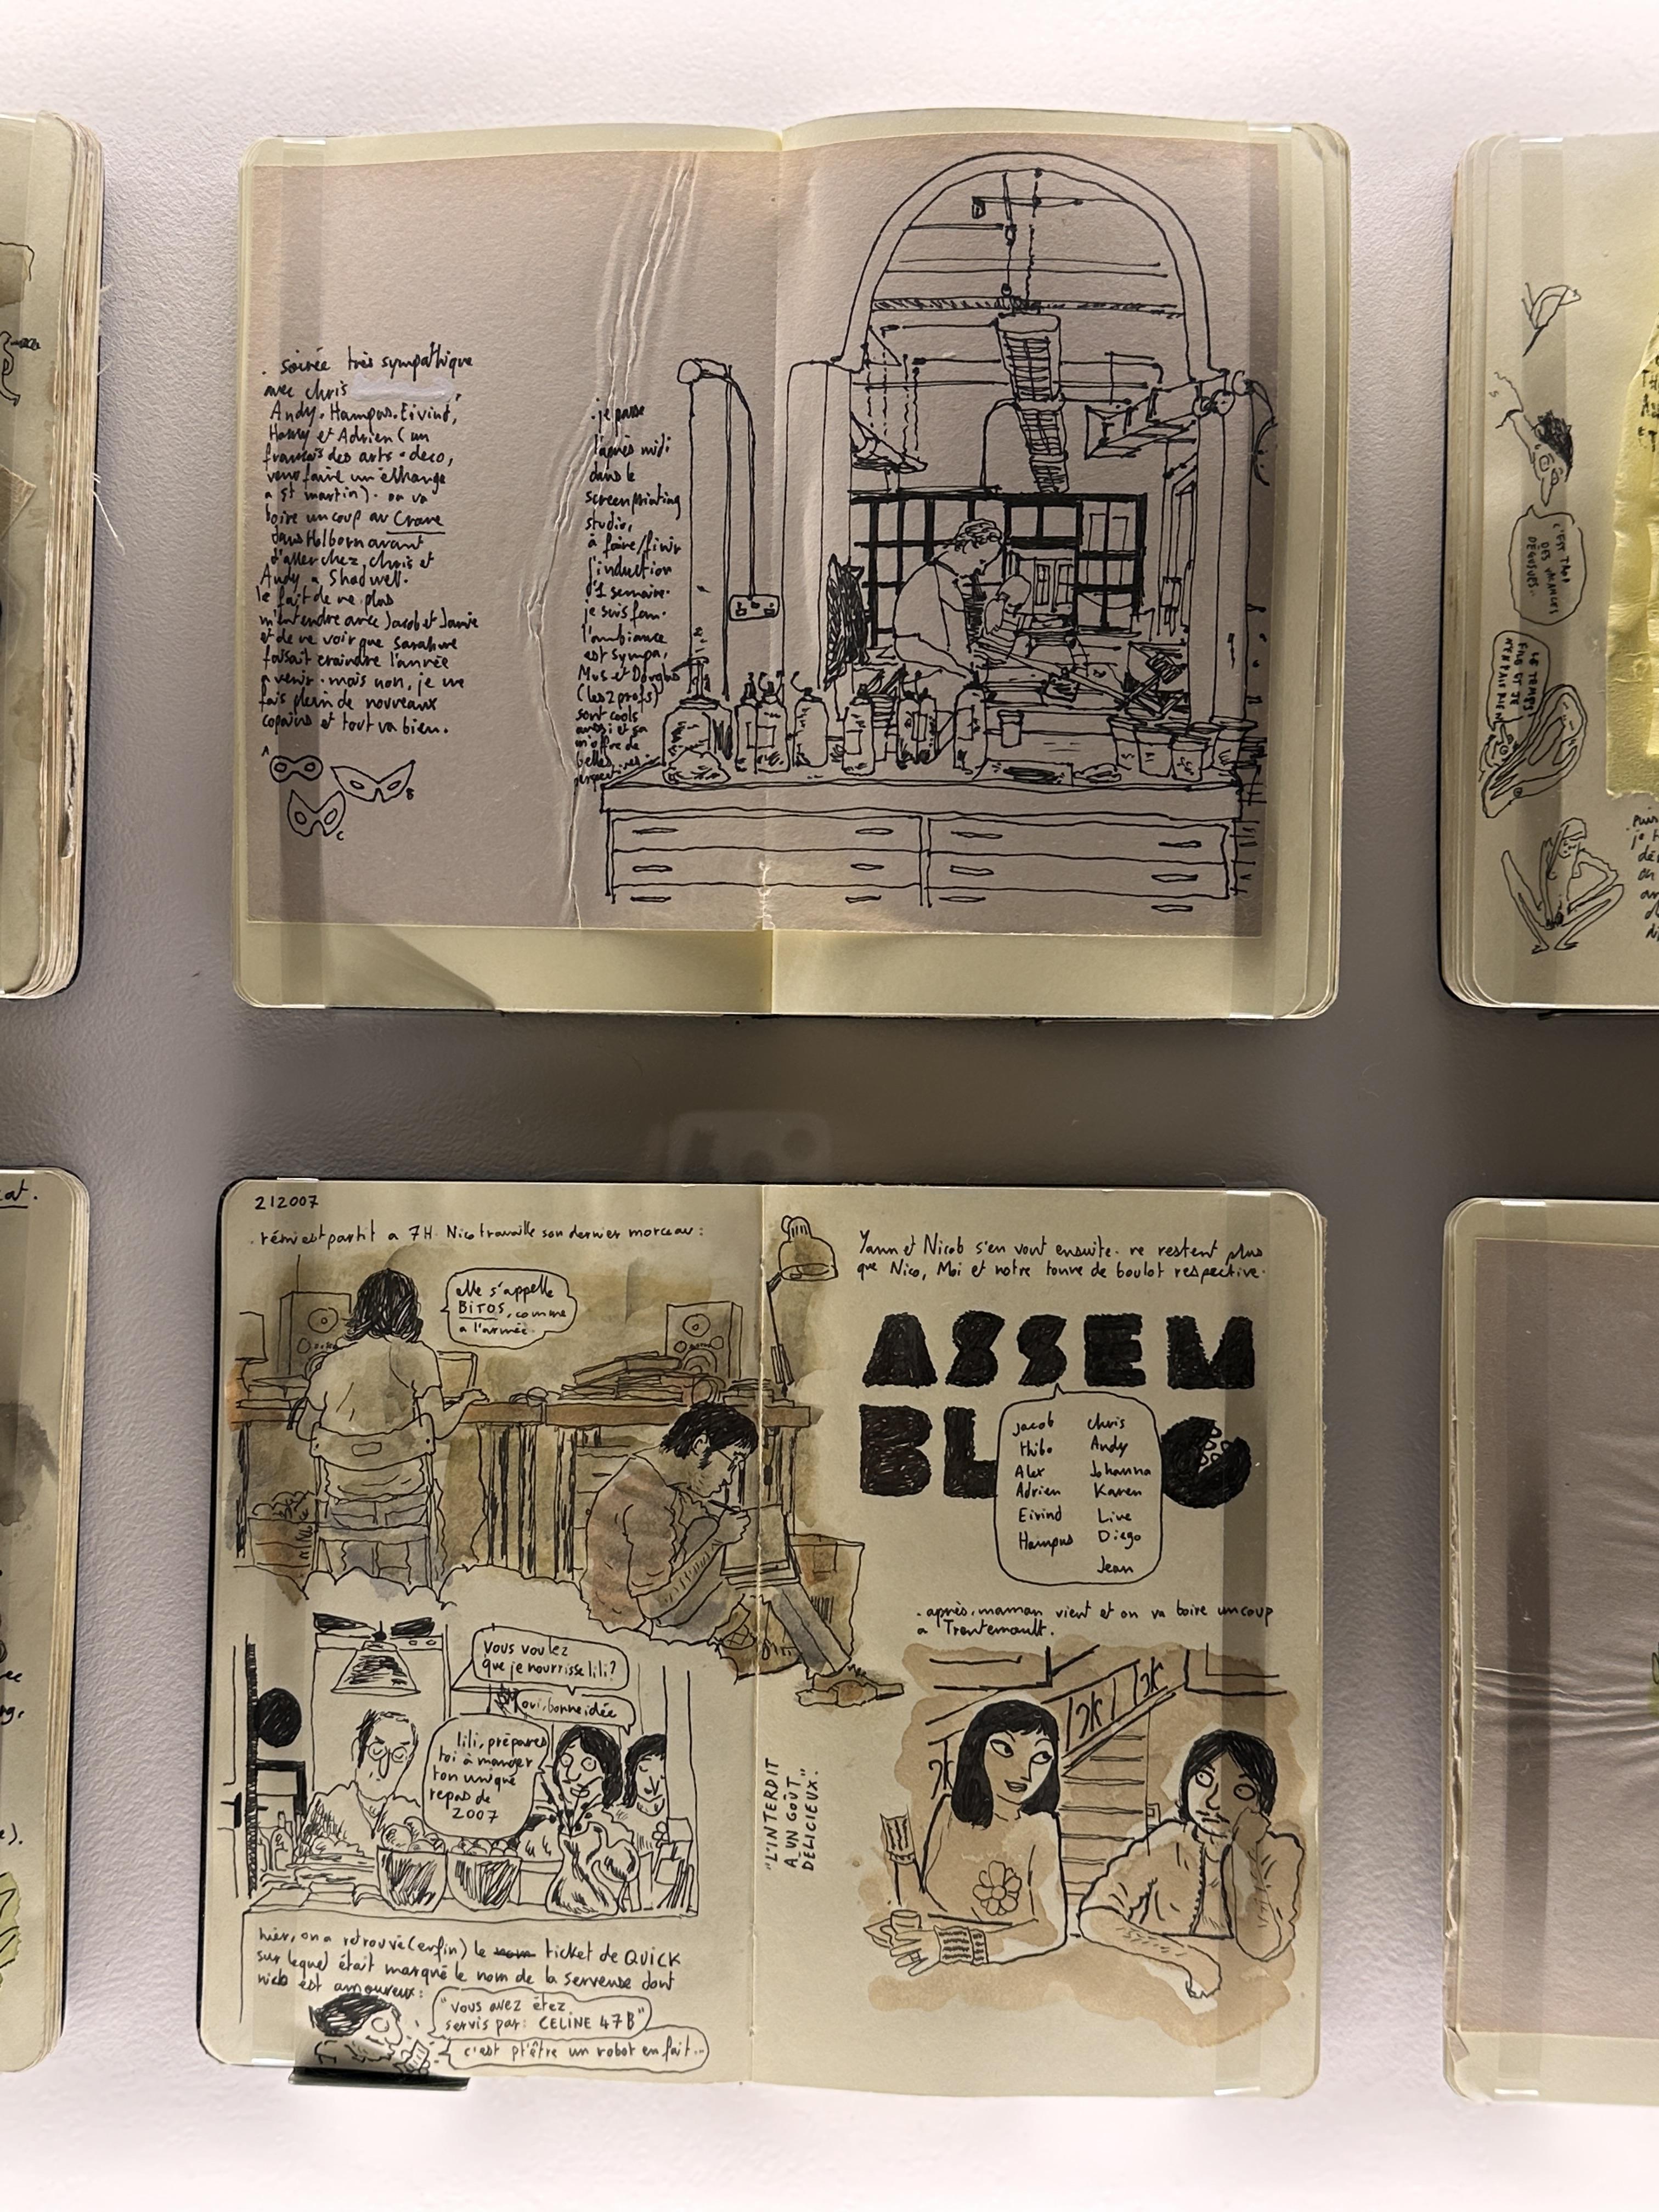 . soirée très sympathique
avec chris
Andy. Hampus. Eivind,
Harry et Adrien (un
français des arts-déco,
venu faire un échange
a st martin). on va
boire un coup au Crave
dans Holborn avant
d'aller chez chris et
Andy a Shadwell.
le fait de ne plus
m'entendre avec Jacob et Jamie
et de ne voir que sarah me
faisait craindre l'année
a venir. mais non, je me
fais plein de nouveaux
copains et tout va bien.
A
B
C
. je passe
l'après midi
dans le
screenprinting
studio,
à faire/finir
l'induction
d'1 semaine.
je suis fan.
l'ambiance
est sympa,
Mus et Douglas
(les 2 profs)
sont cools
aussi et ça
m'offre de
belles
perspectives.
C'EST TROP
DES VACANCES
DÉGUEUES.
LE TEMPS
FILE ET JE
N'EN FAIS RIEN
212007
. rémi est partit a 7H. Nico travaille son dernier morceau :
elle s'appelle
BITOS, comme
a l'armée.
Vous voulez
que je nourrisse lili?
oui, bonne idée
lili, prépares
toi à manger
ton unique
repas de
2007
hier, on a retrouvé (enfin) le ticket de QUICK
sur lequel était marqué le nom de la serveuse dont
nicb est amoureux :
"vous avez étez
servis par: CELINE 47B"
c'est pt'être un robot en fait...
Yann et Nicob s'en vont ensuite. ne restent plus
que Nico, Moi et notre tonne de boulot respective.
ASSEM
BLO
jacob chris
thibo Andy
Alex Johanna
Adrien Karen
Eivind Live
Hampus Diego
Jean
. après. maman vient et on va boire un coup
a Trentemoult.
"L'INTERDIT
A UN GOÛT
DÉLICIEUX."